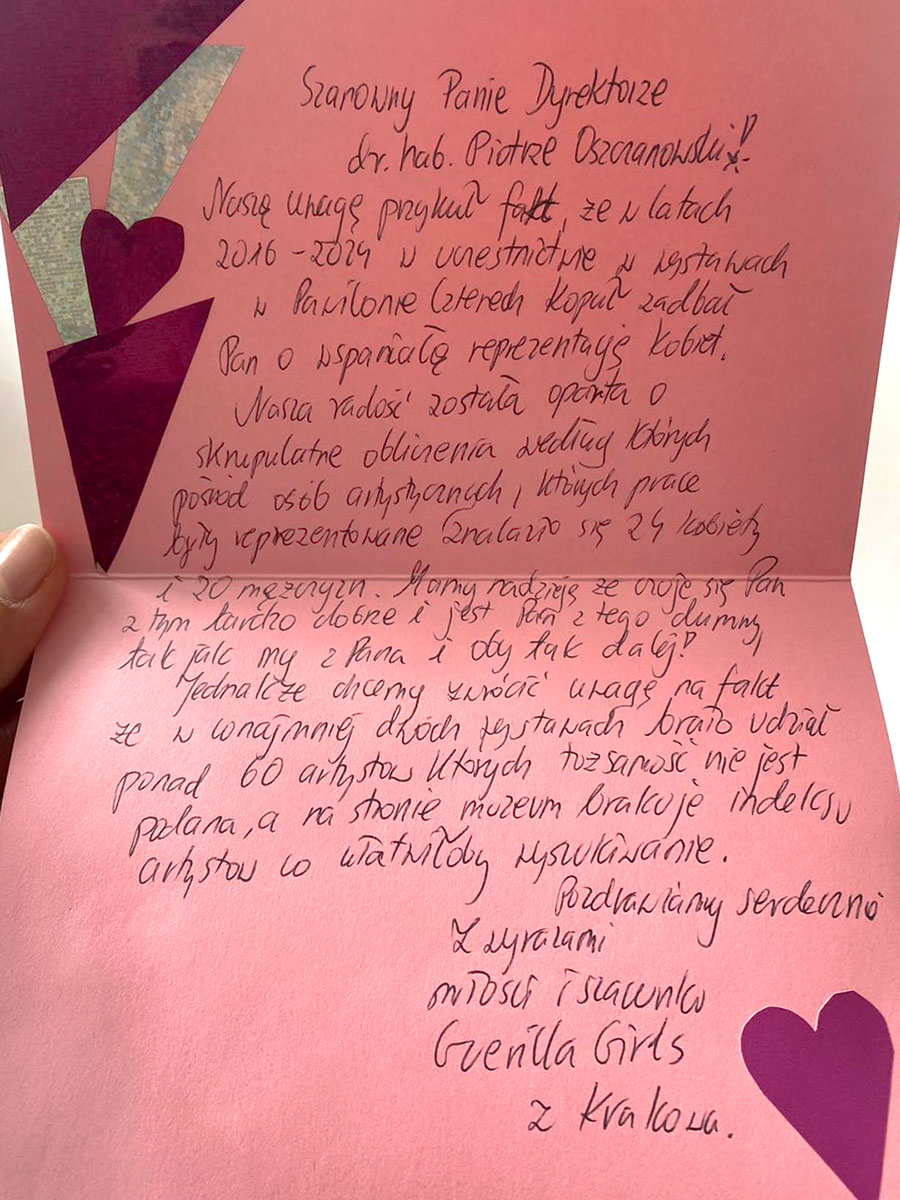 Szanowny Panie Dyrektorze
dr. hab. Piotrze Oszczanowski!
Naszą uwagę przykuł fakt, że w latach
2016 - 2024 w uczestnictwie w wystawach
w Pawilonie Czterech Kopuł zadbał
Pan o wspaniałą reprezentację kobiet.
Nasza radość została oparta o
skrupulatne obliczenia według których
pośród osób artystycznych, których prace
były reprezentowane znalazło się 24 kobiety
i 20 mężczyzn. Mamy nadzieję że czuje się Pan
z tym bardzo dobrze i jest Pan z tego dumny,
tak jak my z Pana i oby tak dalej!
Jednakże chcemy zwrócić uwagę na fakt
że w conajmniej dwóch wystawach brało udział
ponad 60 artystów których tożsamość nie jest
podana, a na stronie muzeum brakuje indeksu
artystów co ułatwiłoby wyszukiwanie.
Pozdrawiamy serdecznie
Z wyrazami
miłości i szacunku
Guerilla Girls
z Krakowa.